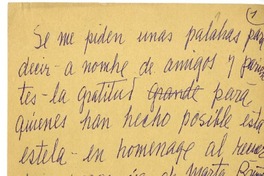 1
Se me piden unas palabras para
decir - a nombre de amigos y parien
tes - la gratitud grande para
quienes han hecho posible esta
estela - en homenage al
de Marta